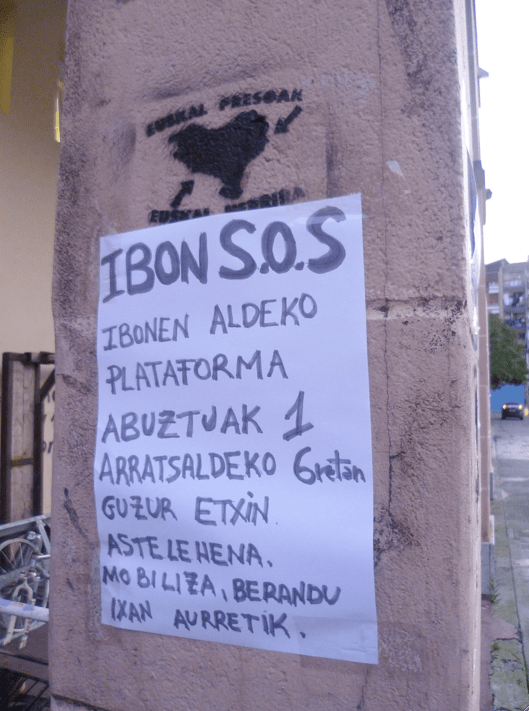 EUSKAL PRESOAK
EUSKAL HERRIRA
IBON S.O.S
IBONEN ALDEKO
PLATAFORMA
ABUZTUAK 1
ARRATSALDEKO 6retan
GUZUR ETXIN.
ASTELEHENA.
MOBILIZA, BERANDU
IXAN AURRETIK.